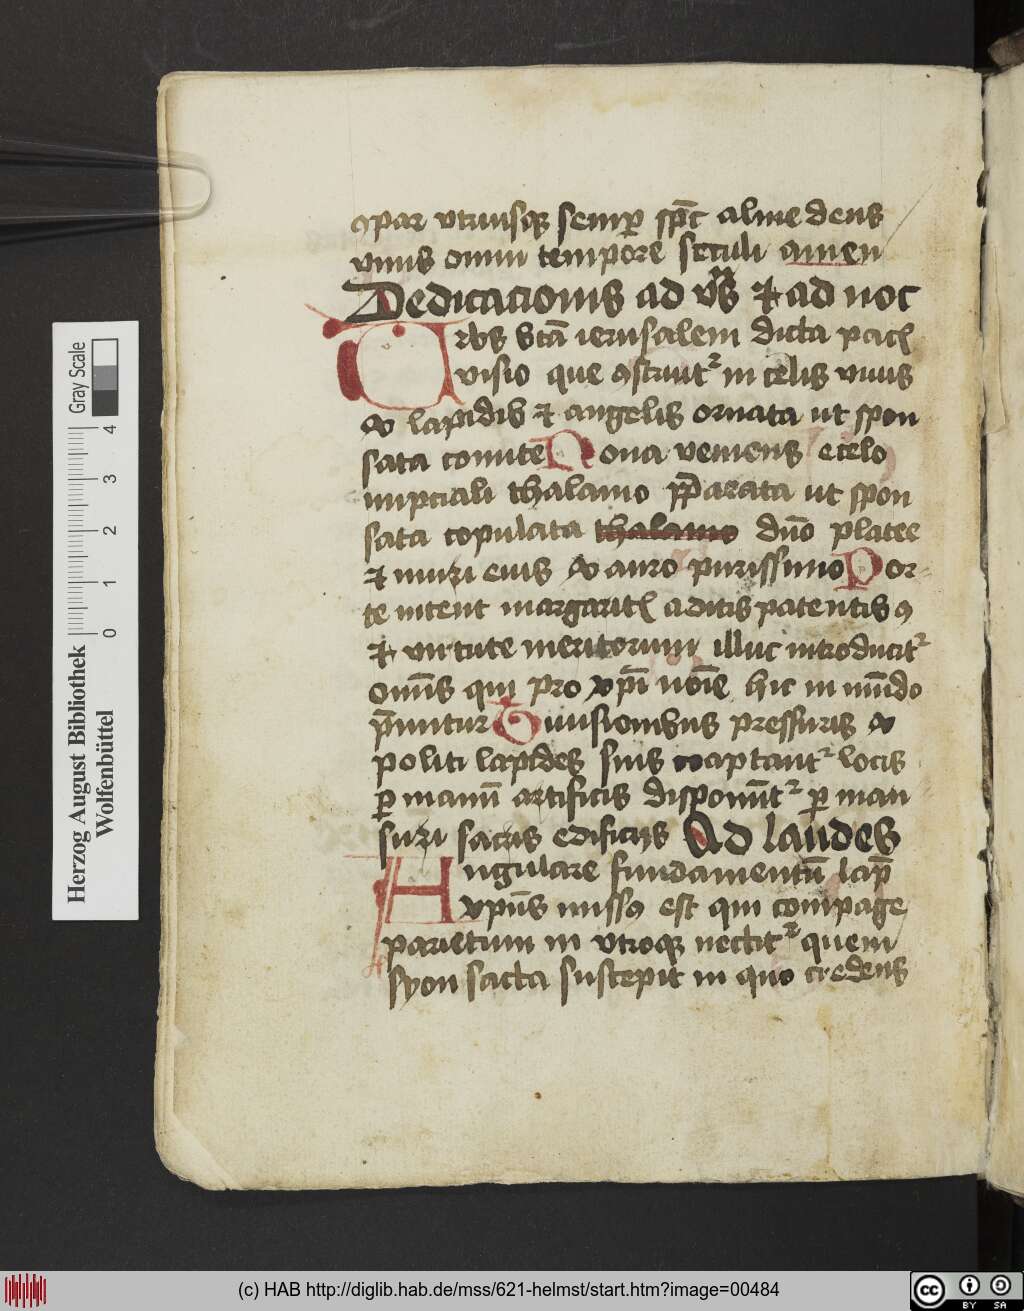 ꝯpar utriusqꝫ semꝑ spc̄ alme deus
unus omni tempore seculi amen
Dedicacionis ad vs̄ et ad noc
Urbs btā ierusalem dicta pacis
visio que ꝯstruit᷑ in celis vivis
ex lapidib et angelis ornata ut spon
sata comite Nova veniens e celo
nupciali thalamo p̄parata ut spon
sata copulata thalamo dn̄o platee
et muri eius ex auro purissimo Por
te nitent margaritis aditis patentib ꝯ
et virtute meritorum illuc introducit᷑
omīs qui pro xpī noīe hic in mūdo
p̄mitur Tunsionibus pressuris ex
politi lapides suis coaptant᷑ locis
ꝑ manū artificis disponūt᷑ ꝑ man
suri sacris edificijs Ad laudes
Angulare fundamentū lap̄
xpūs missꝯ est qui compage
parietum in utroqꝫ nectit᷑ quem
syon sacta suscepit in quo credens
Herzog August Bibliothek
Wolfenbüttel
Gray Scale
0 1 2 3 4
(c) HAB http://diglib.hab.de/mss/621-helmst/start.htm?image=00484
cc BY SA